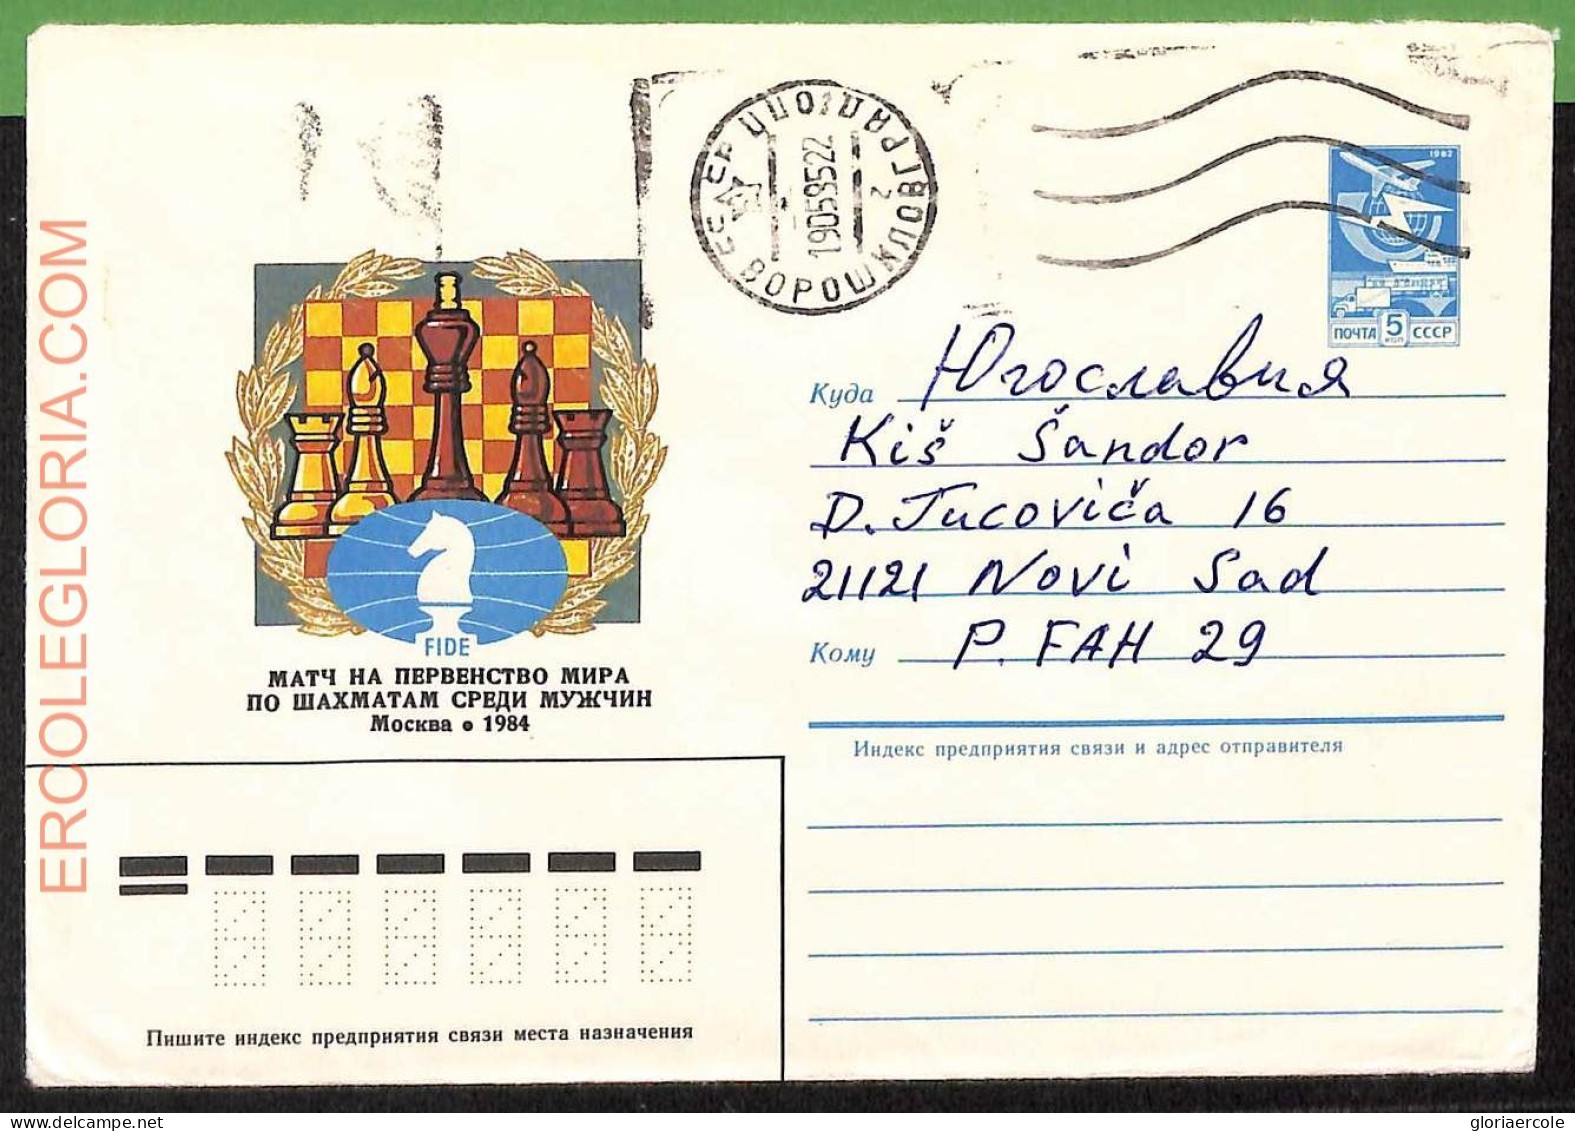 ERCOLEGLORIA.COM
СССР ППО
190585 22
ВОРОШИЛОВГРАД
2
1982
ПОЧТА 5 СССР
Куда Югославия
Kiš Šandor
D. Tucoviča 16
21121 Novi Sad
Кому P. FAH 29
FIDE
МАТЧ НА ПЕРВЕНСТВО МИРА
ПО ШАХМАТАМ СРЕДИ МУЖЧИН
Москва • 1984
Индекс предприятия связи и адрес отправителя
Пишите индекс предприятия связи места назначения
gloriaercole